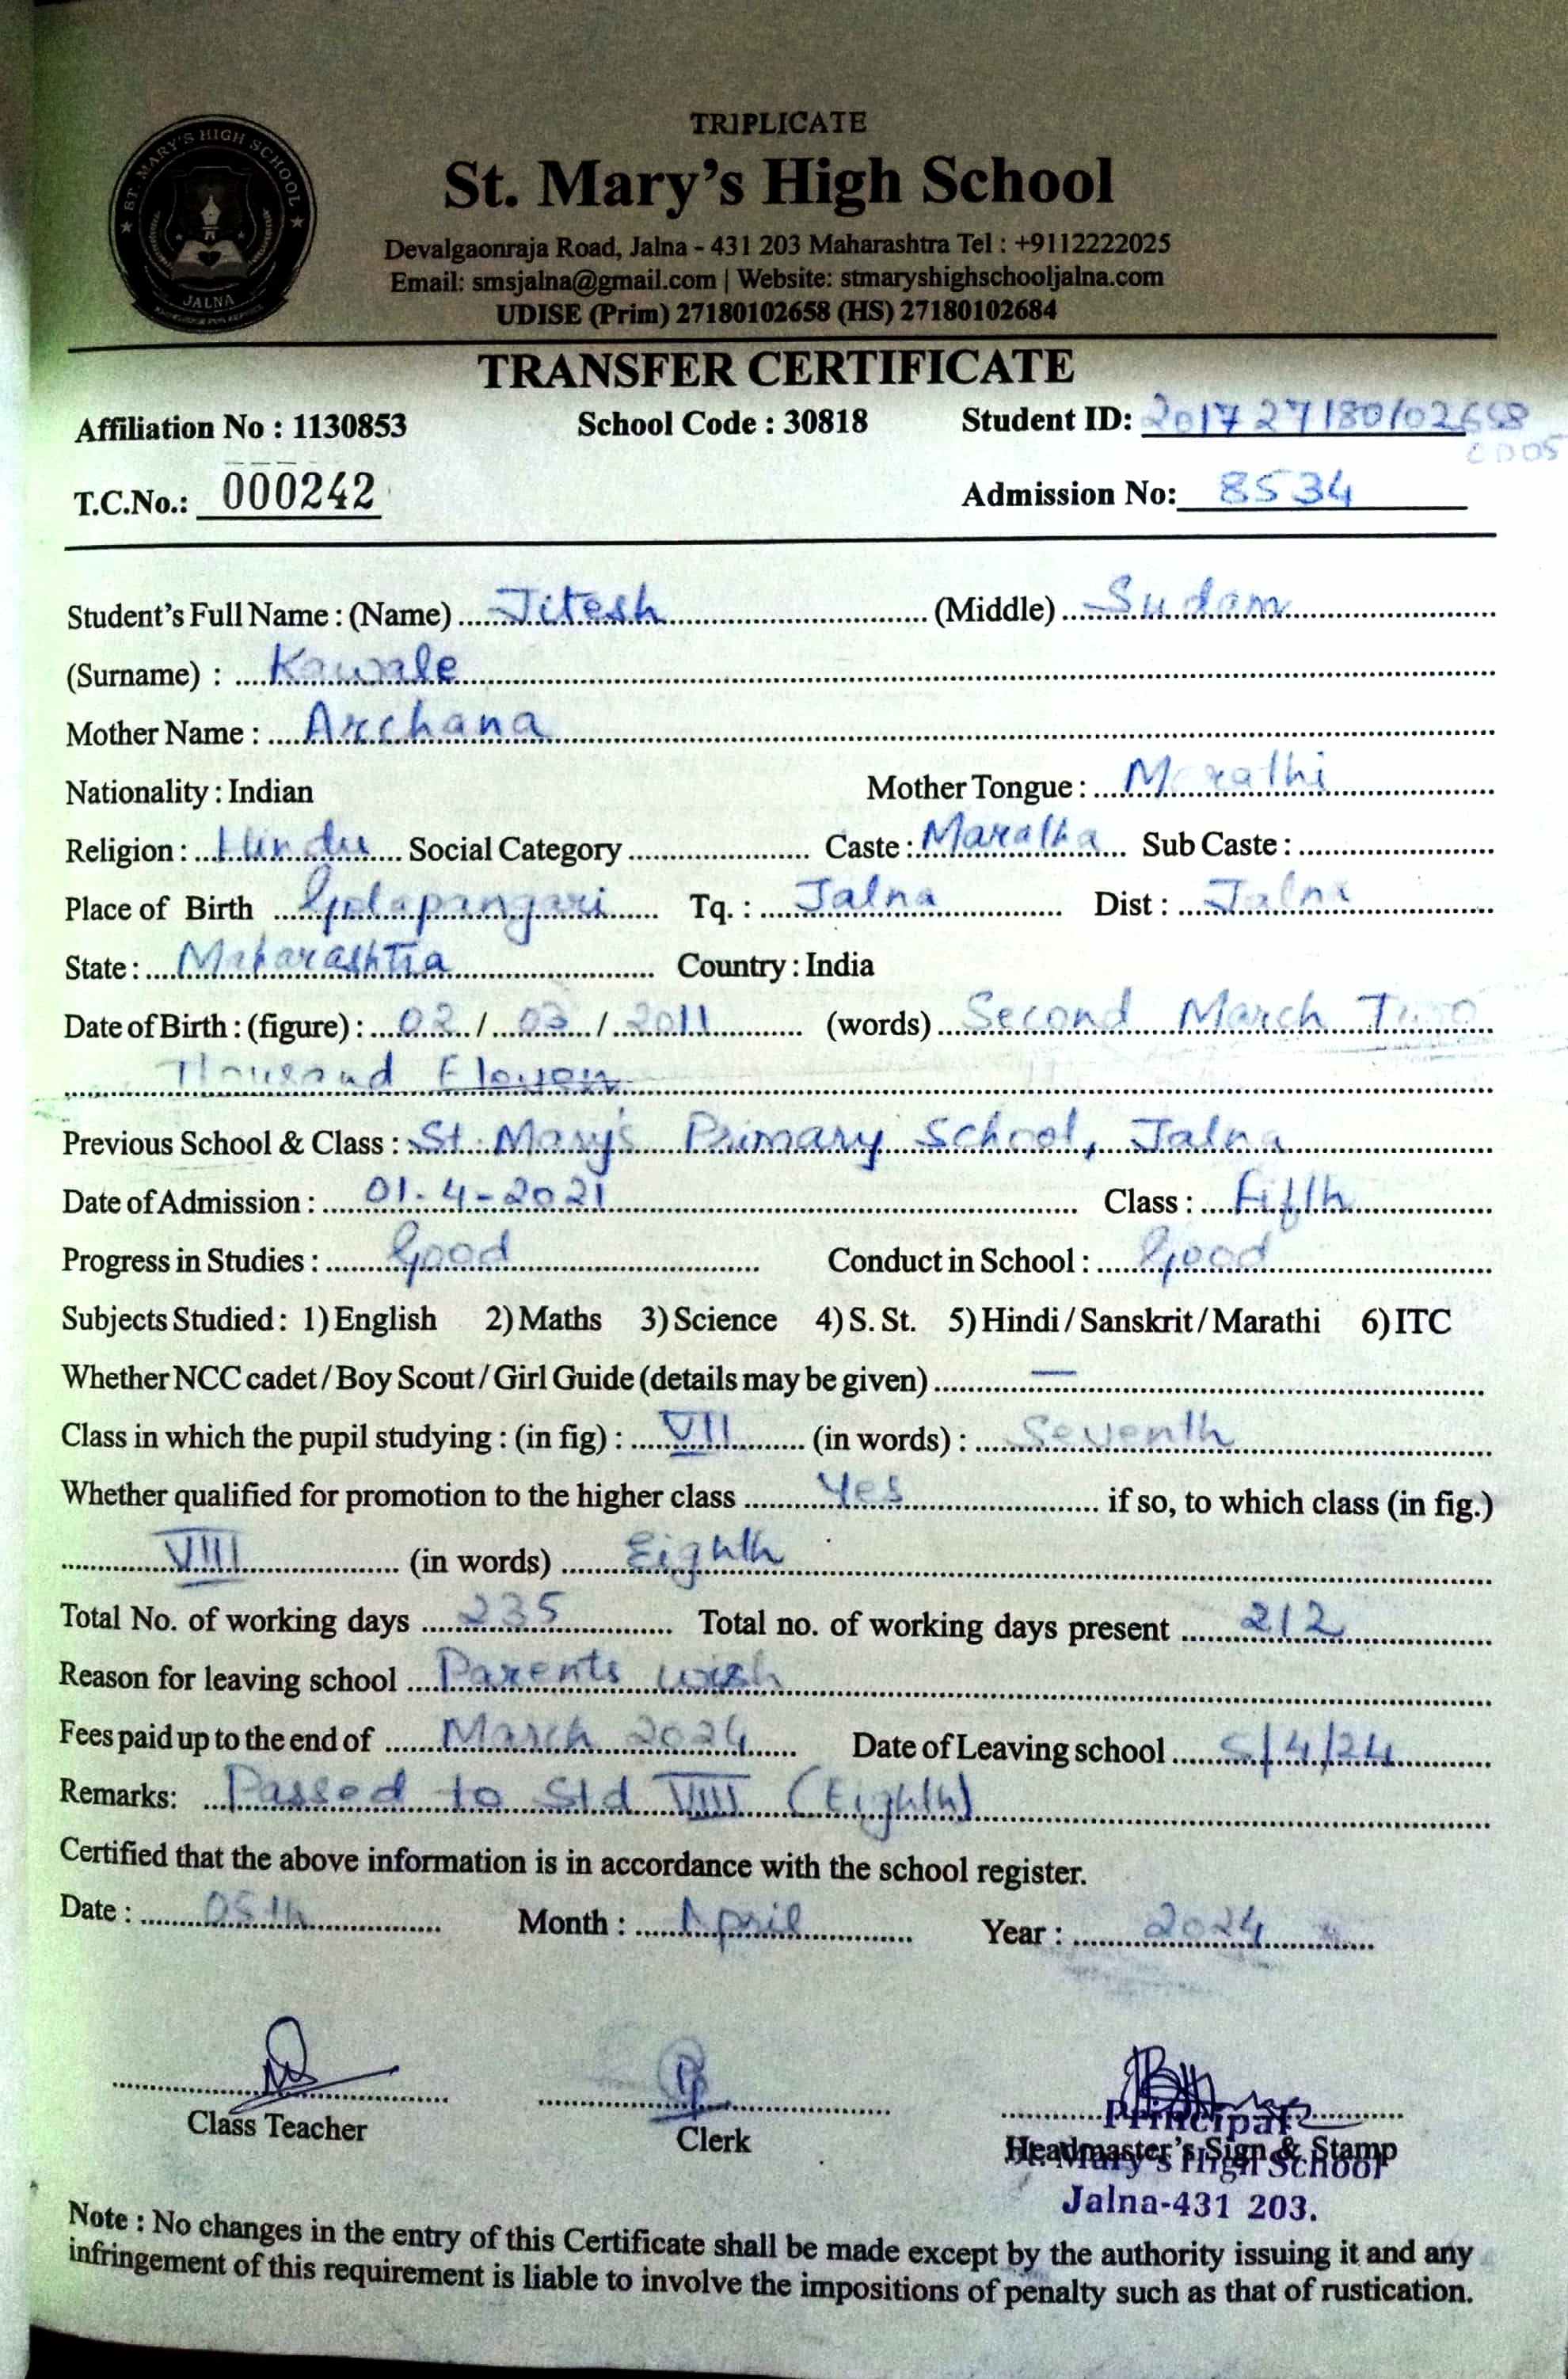 ST. MARY'S HIGH SCHOOL
JALNA
TRIPLICATE
St. Mary's High School
Devalgaonraja Road, Jalna - 431 203 Maharashtra Tel : +9112222025
Email: smsjalna@gmail.com | Website: stmaryshighschooljalna.com
UDISE (Prim) 27180102658 (HS) 27180102684
TRANSFER CERTIFICATE
Affiliation No : 1130853 School Code : 30818 Student ID: 2017 27180102658
0005
T.C.No.: 000242 Admission No: 8534
Student's Full Name : (Name) Jitesh (Middle) Sudam
(Surname) : Kawale
Mother Name : Archana
Nationality : Indian Mother Tongue : Marathi
Religion : Hindu Social Category Caste : Maratha Sub Caste :
Place of Birth Golapangari Tq. : Jalna Dist : Jalna
State : Maharashtra Country : India
Date of Birth : (figure) : 02 / 03 / 2011 (words) Second March Two
Thousand Eleven
Previous School & Class : St. Mary's Primary School, Jalna
Date of Admission : 01-4-2021 Class : Fifth
Progress in Studies : Good Conduct in School : Good
Subjects Studied : 1) English 2) Maths 3) Science 4) S. St. 5) Hindi / Sanskrit / Marathi 6) ITC
Whether NCC cadet / Boy Scout / Girl Guide (details may be given) —
Class in which the pupil studying : (in fig) : VII (in words) : Seventh
Whether qualified for promotion to the higher class Yes if so, to which class (in fig.)
VIII (in words) Eighth
Total No. of working days 235 Total no. of working days present 212
Reason for leaving school Parents wish
Fees paid up to the end of March 2024 Date of Leaving school 5/4/24
Remarks: Passed to Std VIII (Eighth)
Certified that the above information is in accordance with the school register.
Date : 05th Month : April Year : 2024
Class Teacher Clerk Headmaster's Sign & Stamp
Principal
St. Mary's High School
Jalna-431 203.
Note : No changes in the entry of this Certificate shall be made except by the authority issuing it and any
infringement of this requirement is liable to involve the impositions of penalty such as that of rustication.